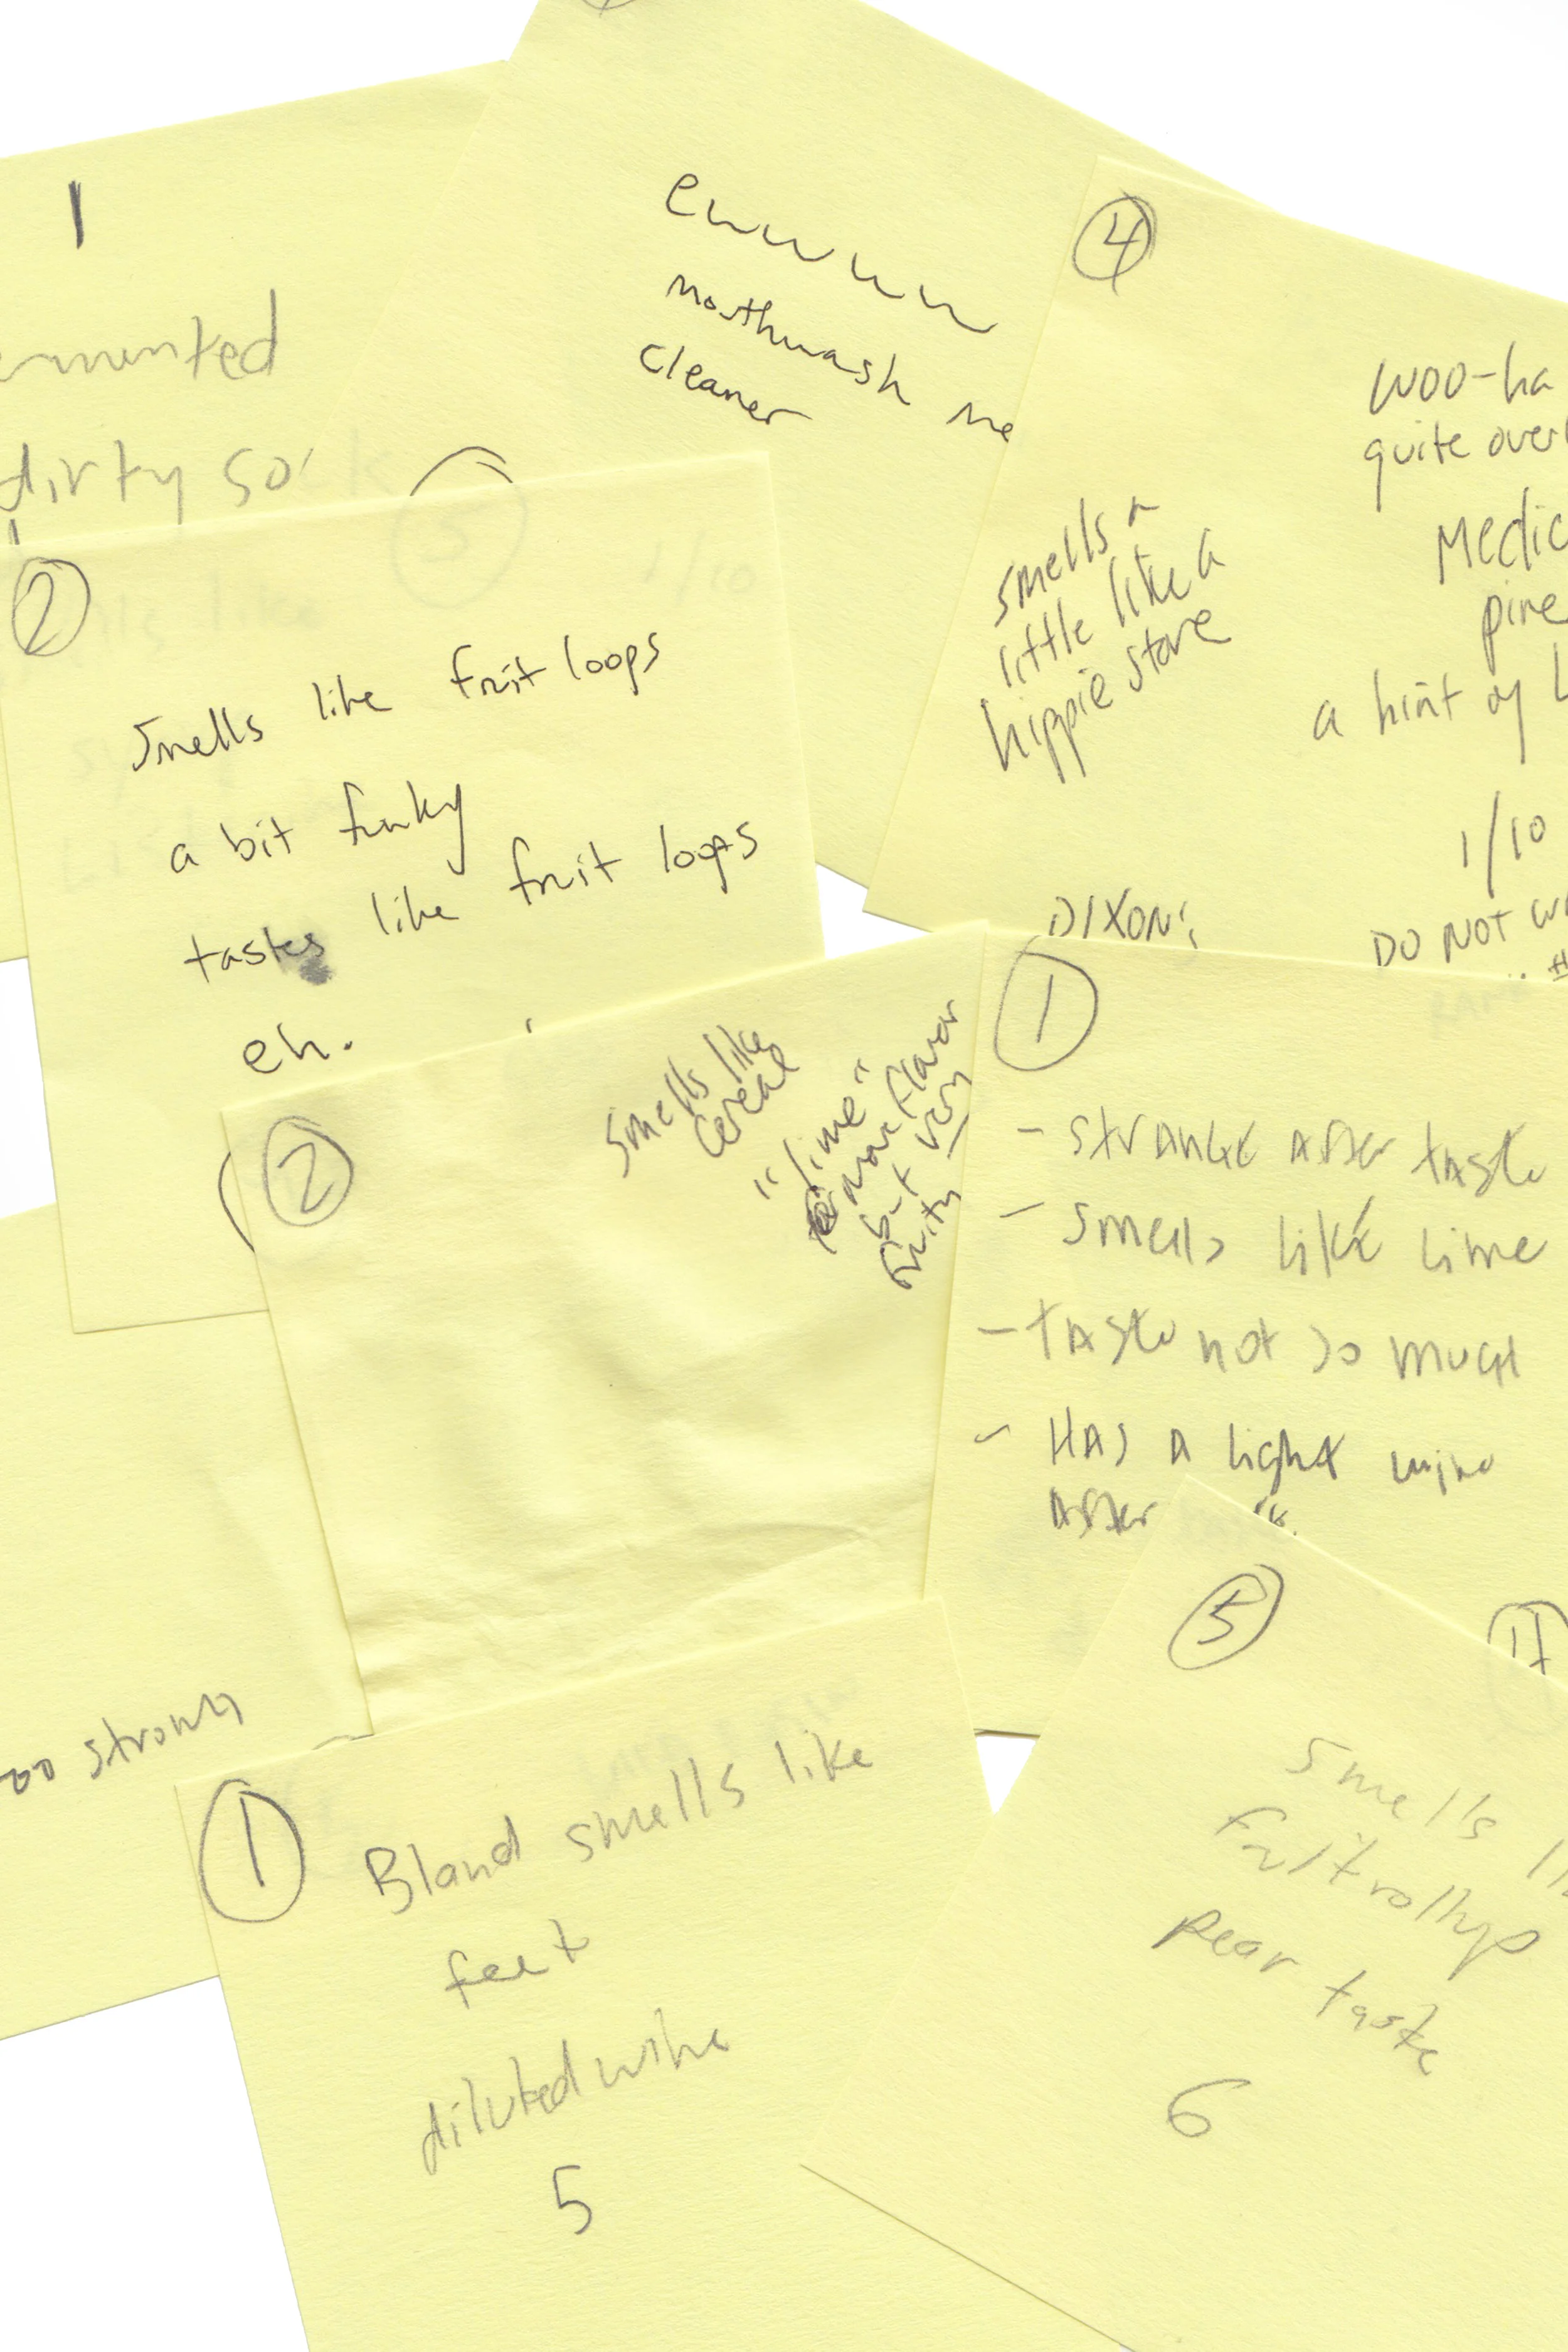 1
ermented
dirty sock
ewwww
mouthwash me
cleaner
4
woo-ha
quite over
Medic
pine
a hint of L
1/10
DO NOT W
smells a
little like a
hippie store
DIXON:
2
smells like fruit loops
a bit funky
tastes like fruit loops
eh.
5
1/10
2
smells like
cereal
"lime"
more flavor
but very
fruity
1
- STRANGE AFTER TASTE
- SMELLS LIKE LIME
- TASTE NOT SO MUCH
- HAS A LIGHT WINE
AFTER
oo strong
1
Bland smells like
feet
diluted wine
5
5
smells li
fruit rollup
pear taste
6